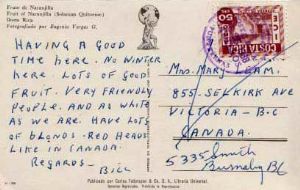 Fruto de Naranjilla
Fruit of Naranjilla (Solanum Quitoense)
Costa Rica
Fotografiado por Eugenio Vargas G.
HAVING A GOOD
TIME HERE. NO WINTER
HERE. LOTS OF GOOD
FRUIT. VERY FRIENDLY
PEOPLE. AND AS WHITE
AS WE ARE. HAVE LOTS
OF BLONDS. RED HEADS
LIKE IN CANADA.
REGARDS-
BILL
COSTA RICA
50
MRS. MARY LEAM.
855-SELKIRK AVE
VICTORIA-B.C
CANADA.
5335 Smith
Burnaby BC
Publicado por Carlos Federspiel & Co. S. A. Librería Universal